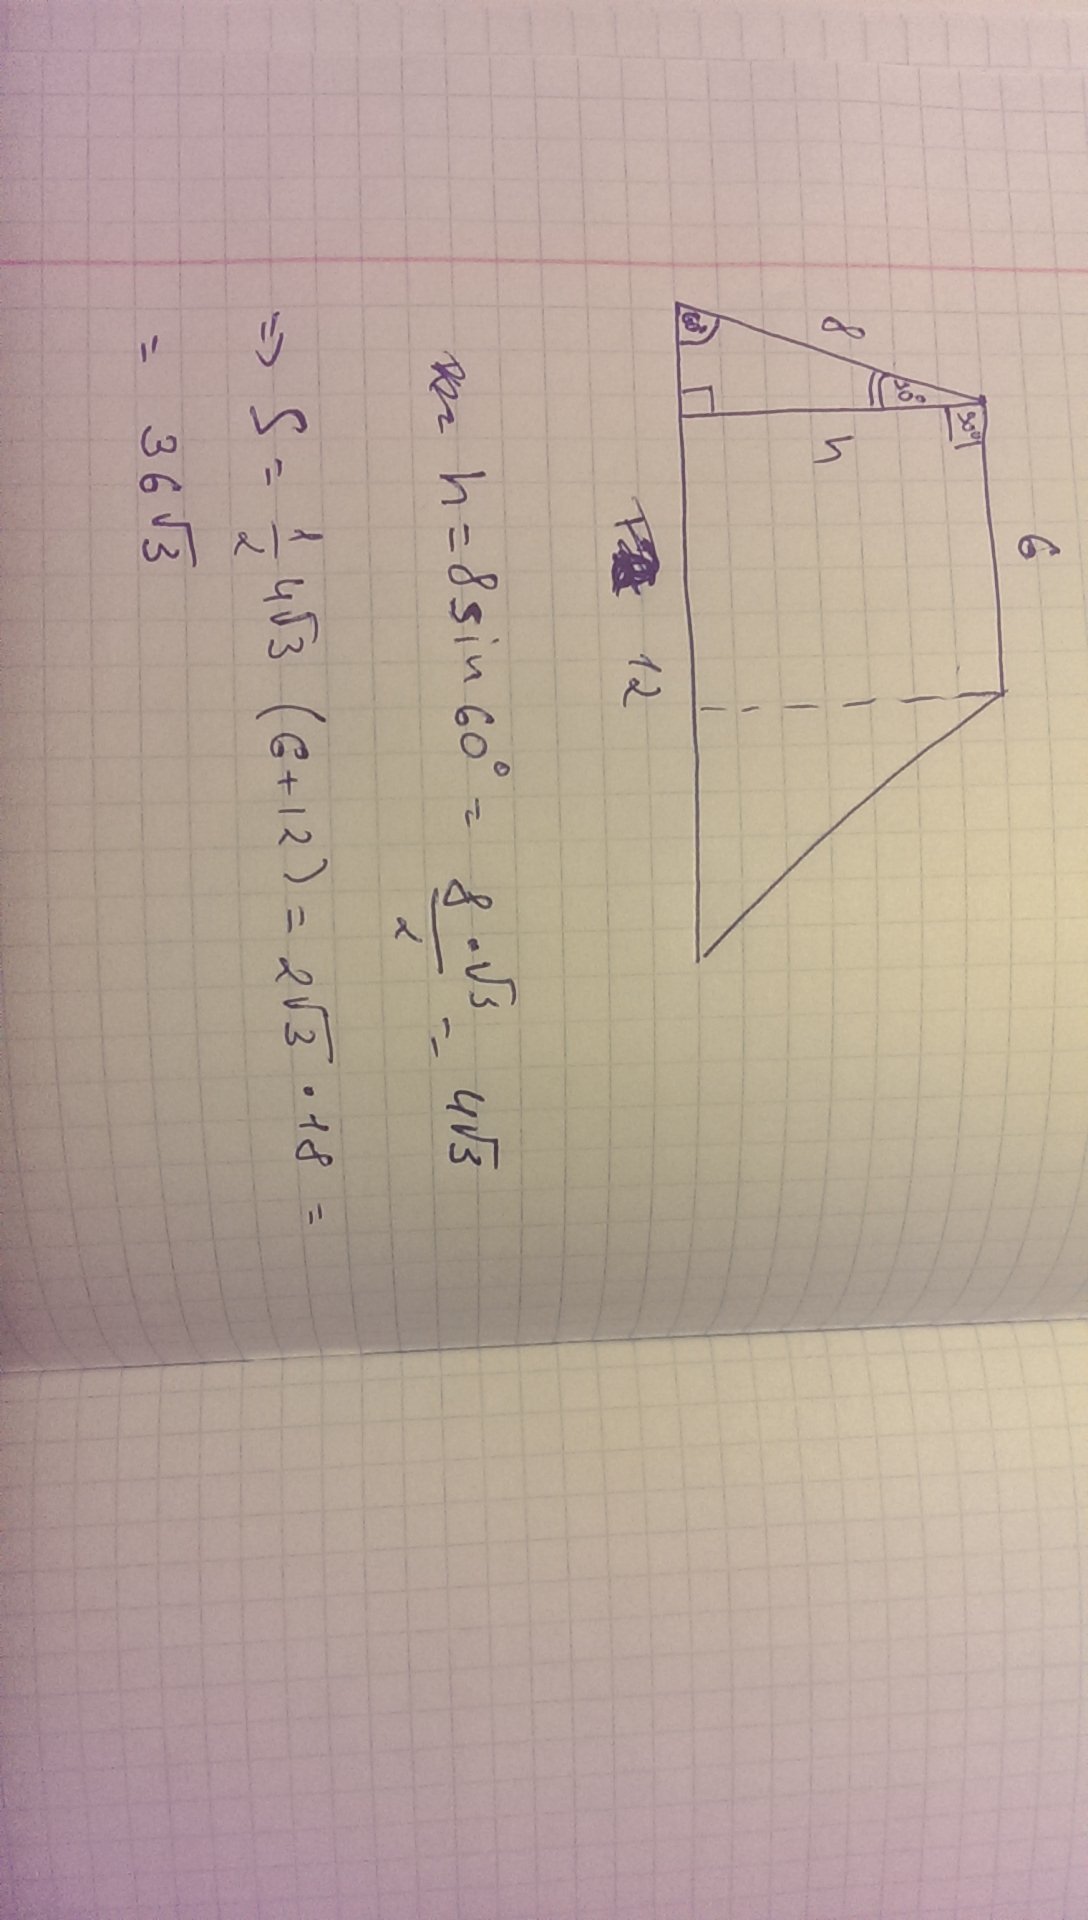 6
8
30°
90°
60°
h
12
h = 8 sin 60° = 8·√3/2 = 4√3
⇒ S = 1/2 4√3 (6+12) = 2√3 · 18 =
= 36√3